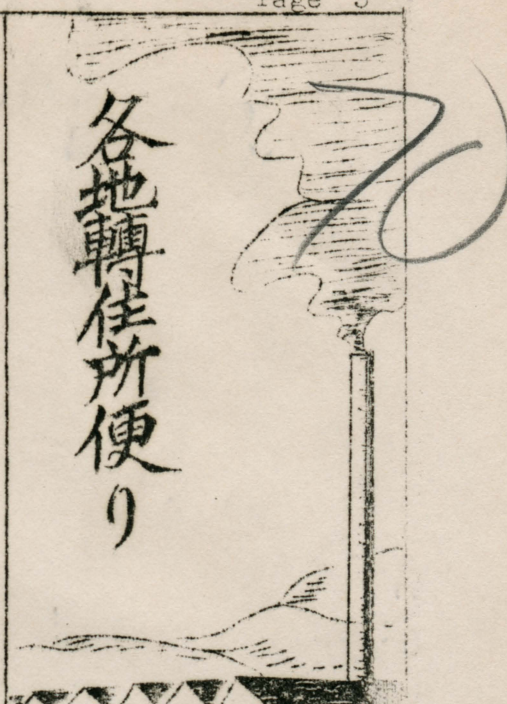 Page 3
各地轉住所便り
70